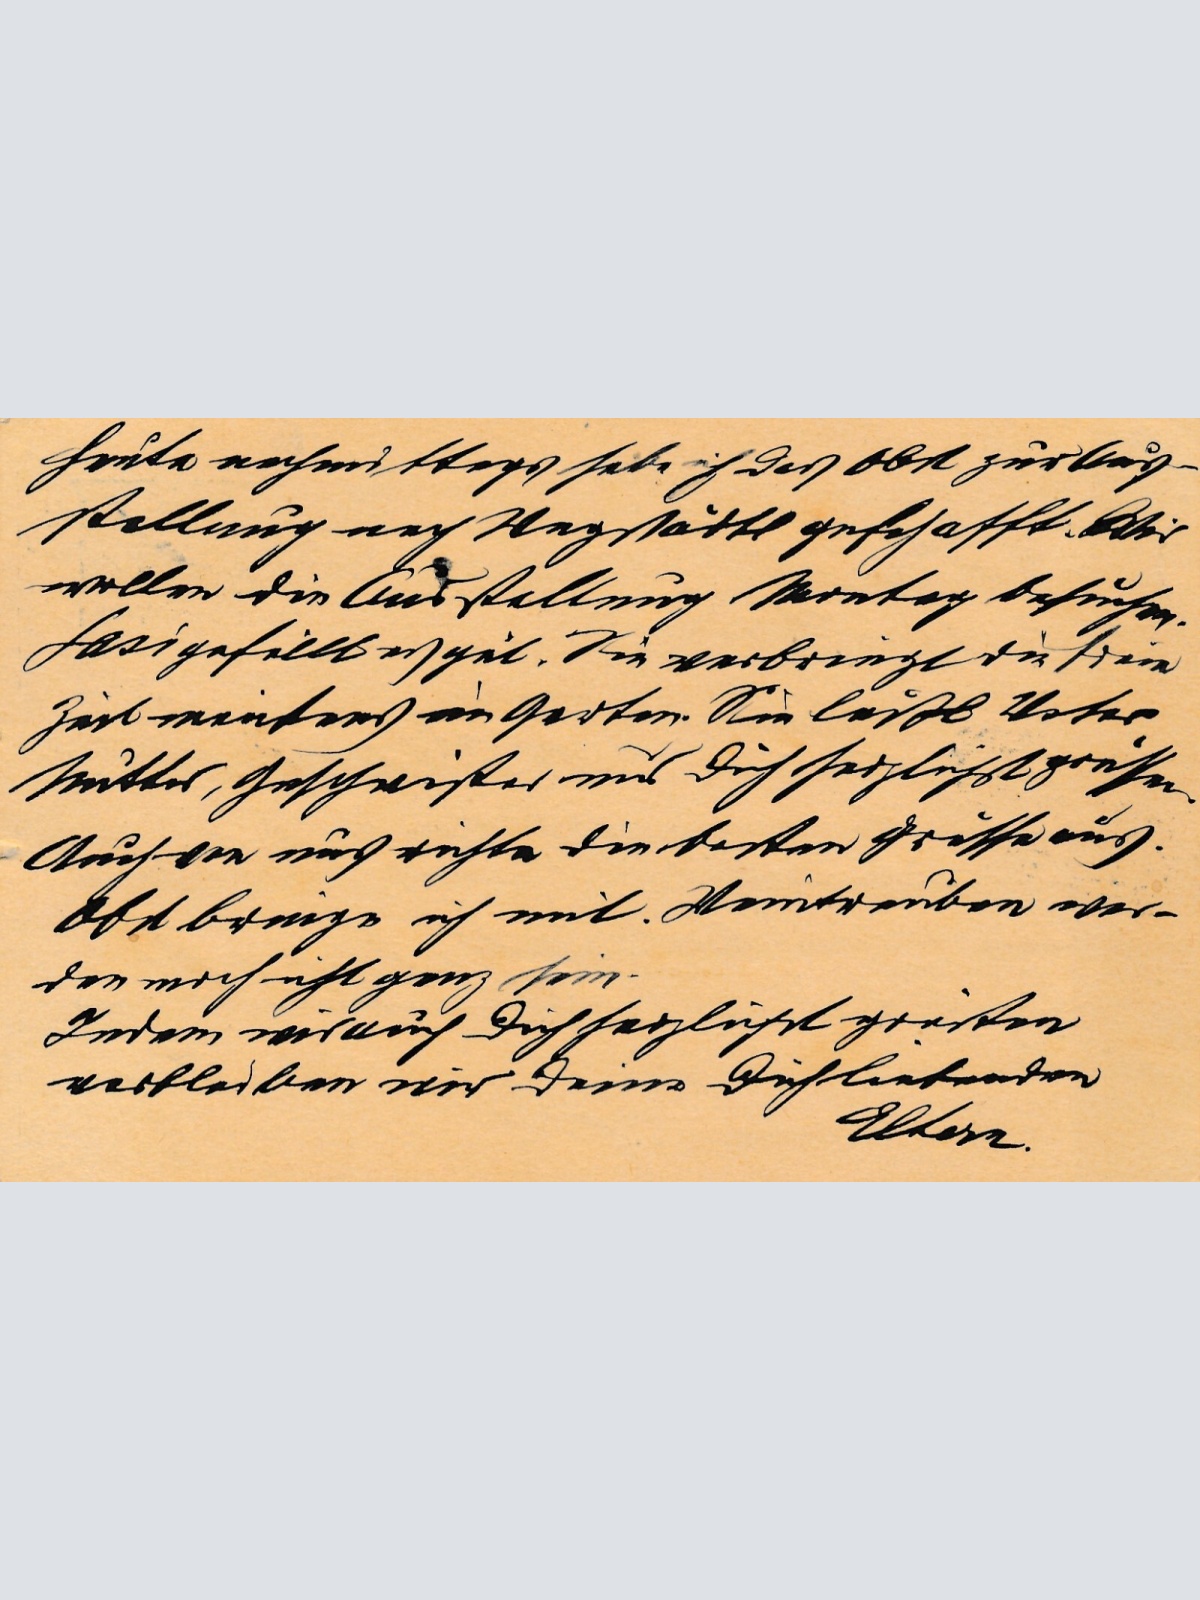 Heute nachmittags habe ich das Obst zur Aus-
stellung nach Wegstädtl geschafft. Wir
wollen die Ausstellung Montag besuchen.
gefällt es gut. Sie verbringt die freie
Zeit meistens im Garten. Sie läßt Vater
Mutter, Geschwister und Dich herzlichst grüssen.
Auch von uns richte die besten Grüsse aus.
Obst bringe ich mit. Weintrauben wer-
den noch nicht ganz sein.
Indem wir auch Dich herzlichst grüssen
verbleiben wir Deine Dich liebenden
Eltern.